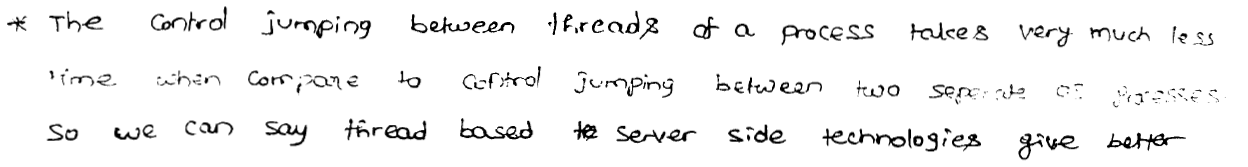 * The Control jumping between threads of a process takes very much less
time when Compare to Control jumping between two seperate OS Processes.
So we can say thread based server side technologies give better